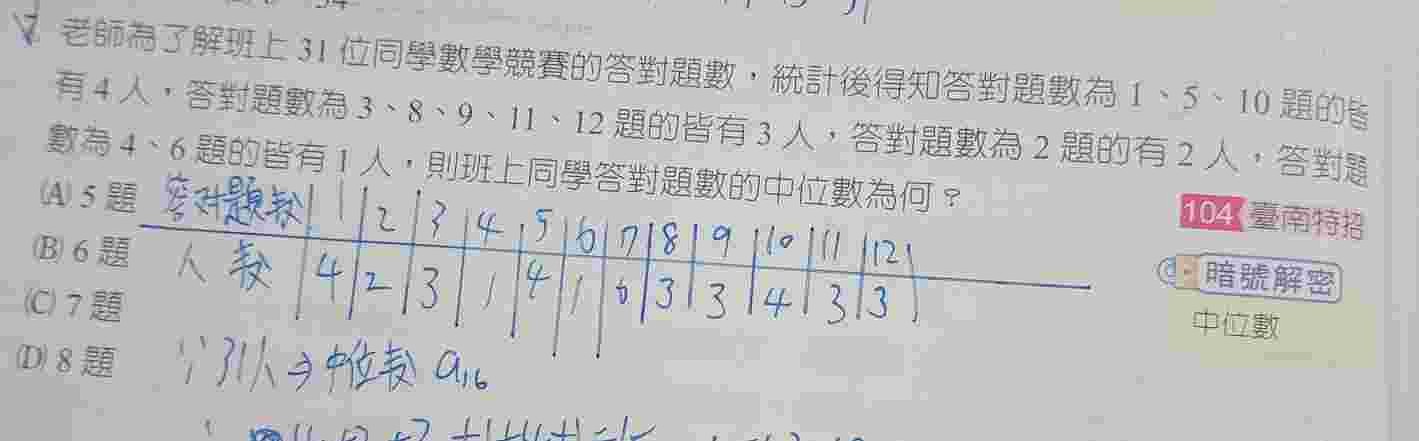 老師為了解班上 31 位同學數學競賽的答對題數，統計後得知答對題數為 1、5、10 題的皆
有 4 人，答對題數為 3、8、9、11、12 題的皆有 3 人，答對題數為 2 題的有 2 人，答對題
數為 4、6 題的皆有 1 人，則班上同學答對題數的中位數為何？
104 臺南特招
(A) 5 題
答对題数 1 2 3 4 5 6 7 8 9 10 11 12
(B) 6 題
人数 4 2 3 1 4 1 0 3 3 4 3 3
暗號解密
中位數
(C) 7 題
(D) 8 題
∵ 31人⇒中位数 a16